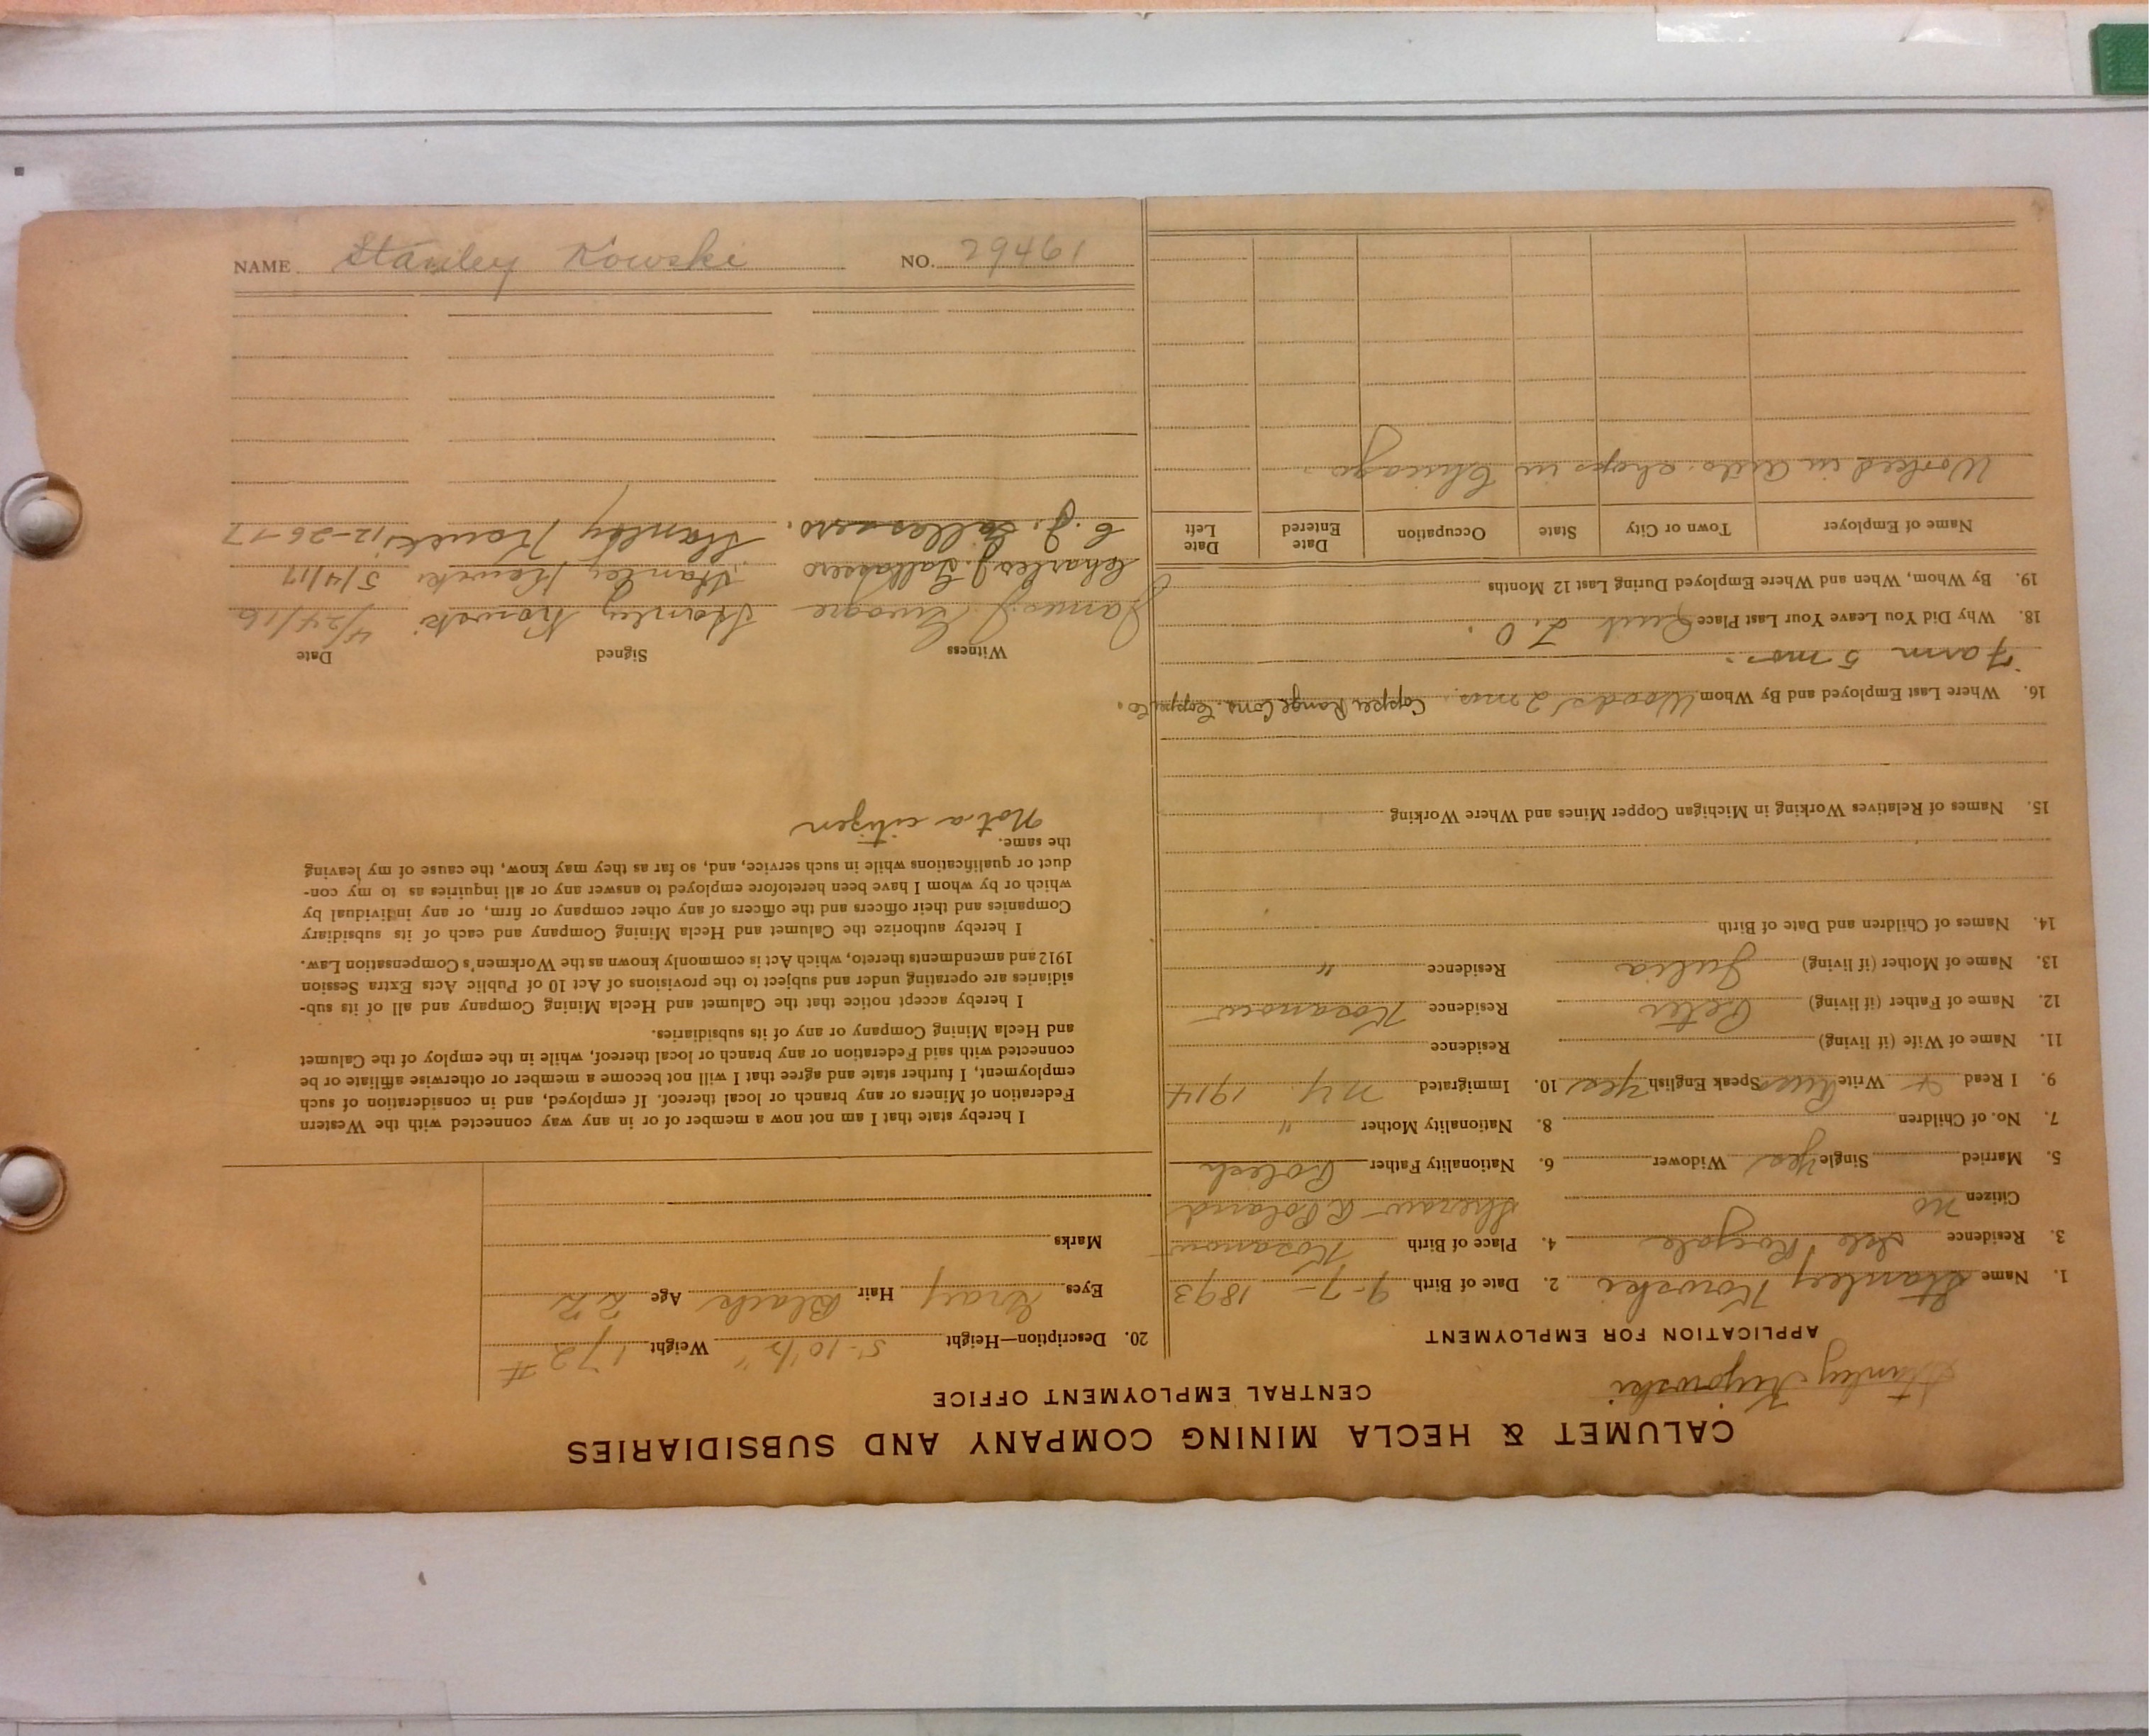 CALUMET & HECLA MINING COMPANY AND SUBSIDIARIES
CENTRAL EMPLOYMENT OFFICE
Stanley
APPLICATION FOR EMPLOYMENT
1. Name Stanley Kowski 2. Date of Birth 9-7- 1893
3. Residence Isle Royale 4. Place of Birth Kosanow
Citizen no R. Poland
5. Married Single Yes Widower 6. Nationality Father Polish
7. No. of Children 8. Nationality Mother "
9. I Read + Write Speak English Yes 10. Immigrated N.Y. 1914
11. Name of Wife (if living) Residence
12. Name of Father (if living) Peter Residence Kosanow
13. Name of Mother (if living) Julia Residence "
14. Names of Children and Date of Birth
15. Names of Relatives Working in Michigan Copper Mines and Where Working
16. Where Last Employed and By Whom Woods 2 mos. Copper Range Cons. Copper Co.
Farm 5 mos.
18. Why Did You Leave Your Last Place Quit
19. By Whom, When and Where Employed During Last 12 Months
Name of Employer Town or City State Occupation Date Entered Date Left
Worked in Auto. shops in Chicago.
20. Description—Height 5'-10½" Weight 172 #
Eyes Gray Hair Black Age 22
Marks
I hereby state that I am not now a member of or in any way connected with the Western
Federation of Miners or any branch or local thereof. If employed, and in consideration of such
employment, I further state and agree that I will not become a member or otherwise affiliate or be
connected with said Federation or any branch or local thereof, while in the employ of the Calumet
and Hecla Mining Company or any of its subsidiaries.
I hereby accept notice that the Calumet and Hecla Mining Company and all of its sub-
sidiaries are operating under and subject to the provisions of Act 10 of Public Acts Extra Session
1912 and amendments thereto, which Act is commonly known as the Workmen's Compensation Law.
I hereby authorize the Calumet and Hecla Mining Company and each of its subsidiary
Companies and their officers and the officers of any other company or firm, or any individual by
which or by whom I have been heretofore employed to answer any or all inquiries as to my con-
duct or qualifications while in such service, and, so far as they may know, the cause of my leaving
the same.
Not a citizen
Witness Signed Date
James J. Stanley Kowski 4/24/16
Charles J. Gallassero Stanley Kowski 5/4/17
C. J. Gallassero. Stanley Kowski 12-26-17
NAME Stanley Kowski NO. 29461